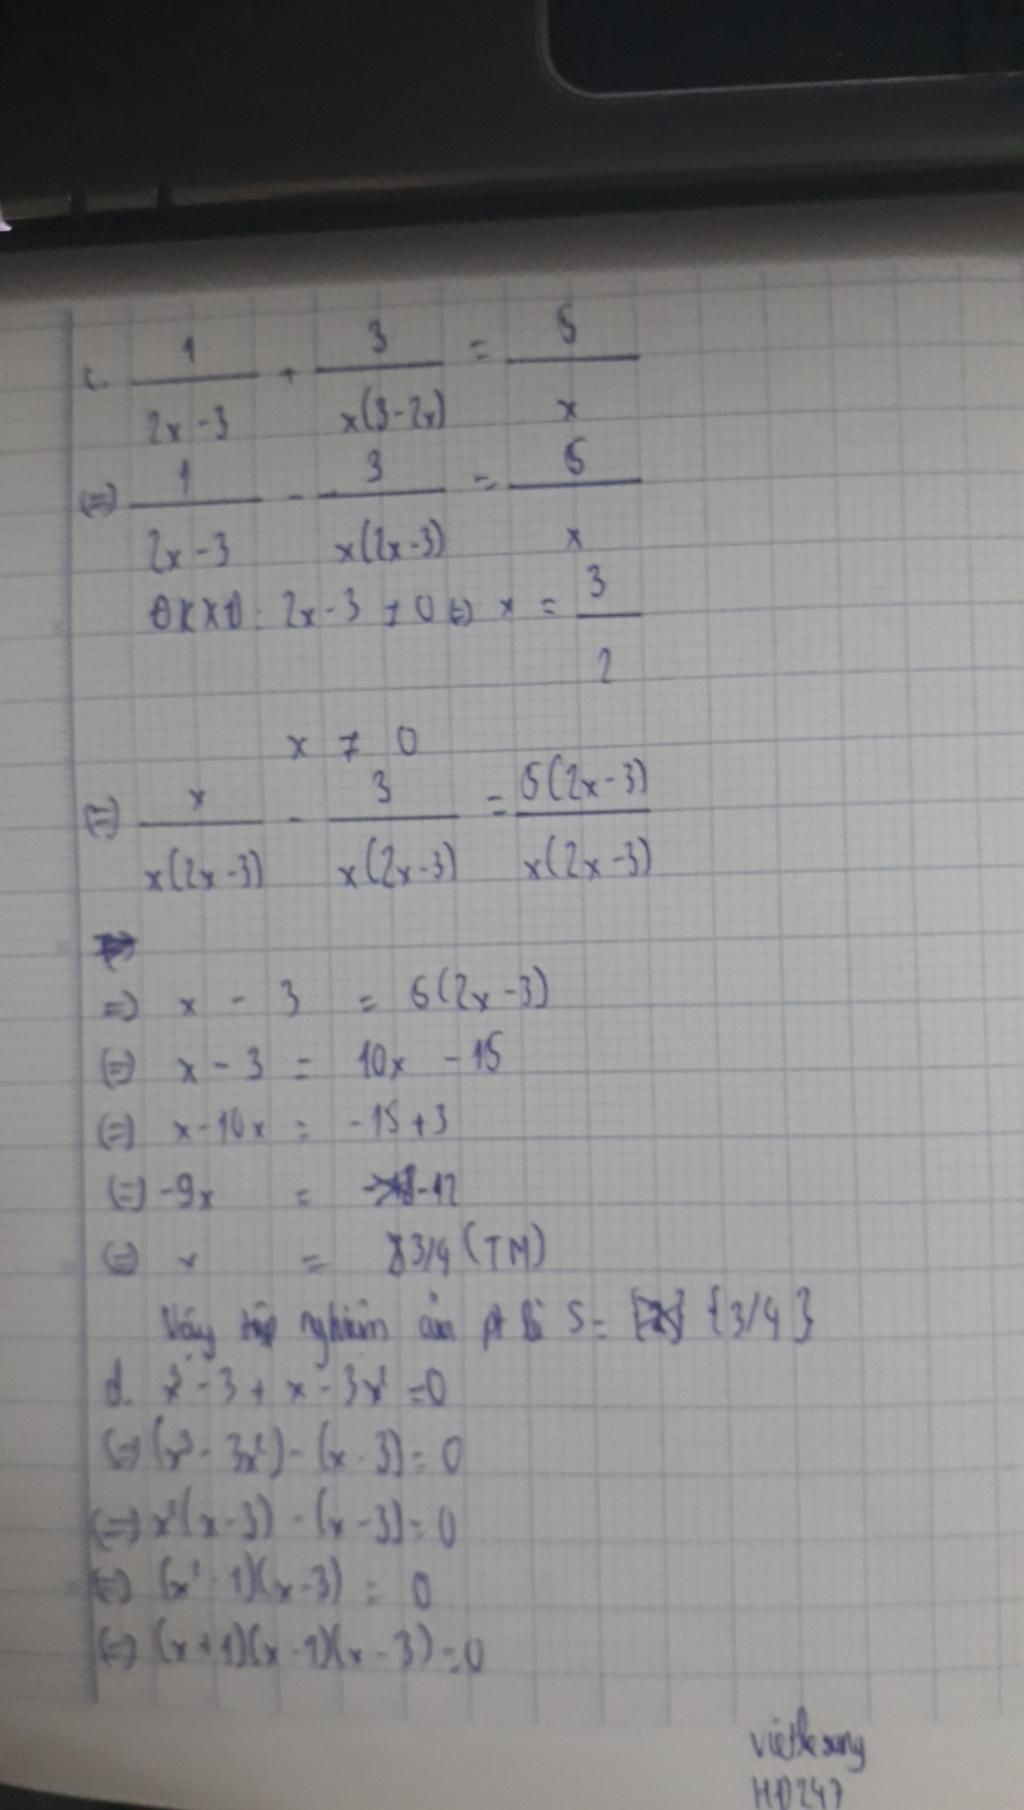 c. 1/(2x-3) + 3/(x(3-2x)) = 5/x
(=) 1/(2x-3) - 3/(x(2x-3)) = 5/x
ĐKXĐ: 2x-3 ≠ 0 (=) x = 3/2
x ≠ 0
(=) x/(x(2x-3)) - 3/(x(2x-3)) = 5(2x-3)/(x(2x-3))
=) x - 3 = 5(2x-3)
(=) x - 3 = 10x - 15
(=) x-10x = -15+3
(=) -9x = -12
(=) x = 3/4 (TM)
Vậy tập nghiệm của pt là S = {3/4}
d. x³ - 3 + x - 3x² = 0
(=) (x³ - 3x²) - (x - 3) = 0
(=) x²(x-3) - (x-3) = 0
(=) (x² - 1)(x-3) = 0
(=) (x+1)(x-1)(x-3) = 0
HĐ247